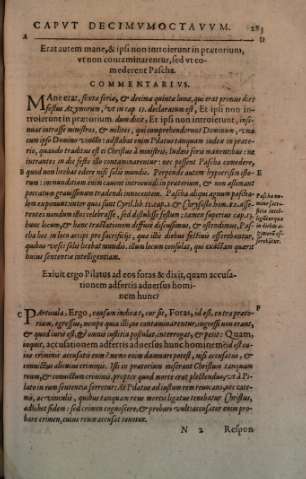 CAPVT DECIMVMOCTAVVM. 283
A D
Erat autem mane, & ipsi non introierunt in prætorium,
vt non contaminarentur, sed vt co-
mederent Pascha.
COMMENTARIVS.
MAne erat, sexta feria, & decima quinta luna, qui erat primus dies
festus Azymorum, vt in cap. 13. declarauimus, Et ipsi non in-
troierunt in prætorium. dum dicit, Et ipsi non introierunt, insi-
nuat intrasse ministros, & milites, qui comprehenderunt Dominum, vna
cum ipso Domino vincto: adstabat enim Pilato tanquam iudex in præto-
rio, quando traditus est ei Christus à ministris; Iudæi foris manentibus: ne
intrantes in die festo illo contaminarentur: nec possent Pascha comedere,
B quod non licebat edere nisi solis mundis. Perpende autem hypocrisin isto-
rum: immunditiam enim cauent introeundi in prætorium, & non æstimant
peccatum grauissimum tradendi innocentem. Pascha aliqui agnum pascha-
lem exponunt inter quos sunt Cyril. lib. 12. cap. & Chrysost. hom. 82. asse-
rentes nondum illos celebrasse, sed distulisse festum: tamen superius cap. 13.
hunc locum, & hanc traditionem diffuse discussimus, & ostendimus, Pas-
cha hoc in loco accipi pro sacrificijs, quæ illis diebus festiuis offerebantur,
quibus vesci solis licebat mundis. illum locum consulat, qui exactam quærit
huius sententiæ intelligentiam.
Pascha no-
mine
Exiuit ergo Pilatus ad eos foras & dixit, quam accusa-
tionem adfertis aduersus homi-
nem hunc?
C PArticula, Ergo, causam indicat, cur sit, Foras, id est, extra præto-
rium, egressus, nempe quia illi, ne contaminarentur, ingressi non erant,
& quod iuris est, & omnis iustitia postulat, interrogat, & petit: Quam,
inquit, accusationem adfertis aduersus hunc hominem? id est cu-
ius criminis accusatis eum? nemo enim damnari potest, nisi accusatus, &
conuictus alicuius criminis. Isti in prætorium miserant Christum tanquam
reum, & conuictum criminis, propter quod mortis erat plectendus, vt à Pi-
lato in eum sententia ferretur: At Pilatus ad iustum rem reuocans, nec cate-
nis, ac vinculis, quibus tanquam reus mortis ligatus tenebatur Christus,
adhibet fidem: sed crimen cognoscere, & probare vult: accusatur enim pro-
bare crimen, cuius reum accusat tenetur.
N 2 Respon